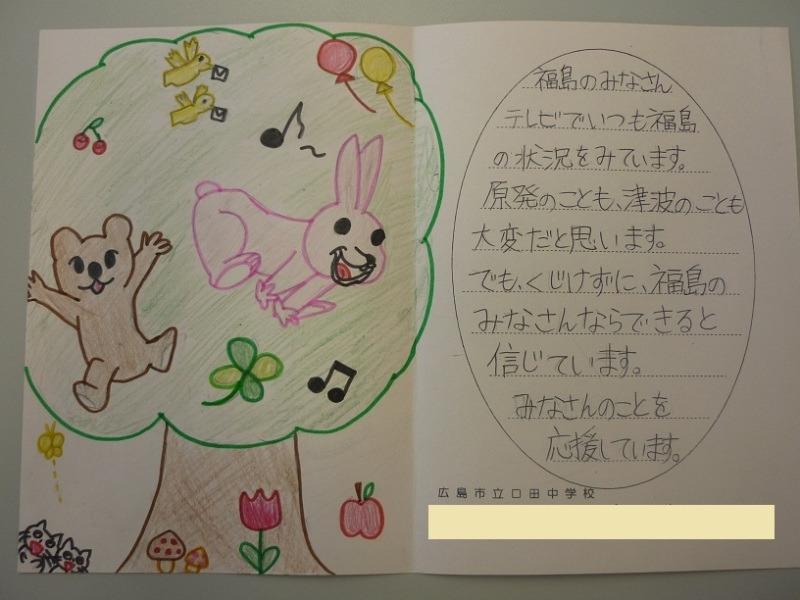 福島のみなさん
テレビでいつも福島
の状況をみています。
原発のことも、津波のことも
大変だと思います。
でも、くじけずに、福島の
みなさんならできると
信じています。
みなさんのことを
応援しています。
広島市立口田中学校